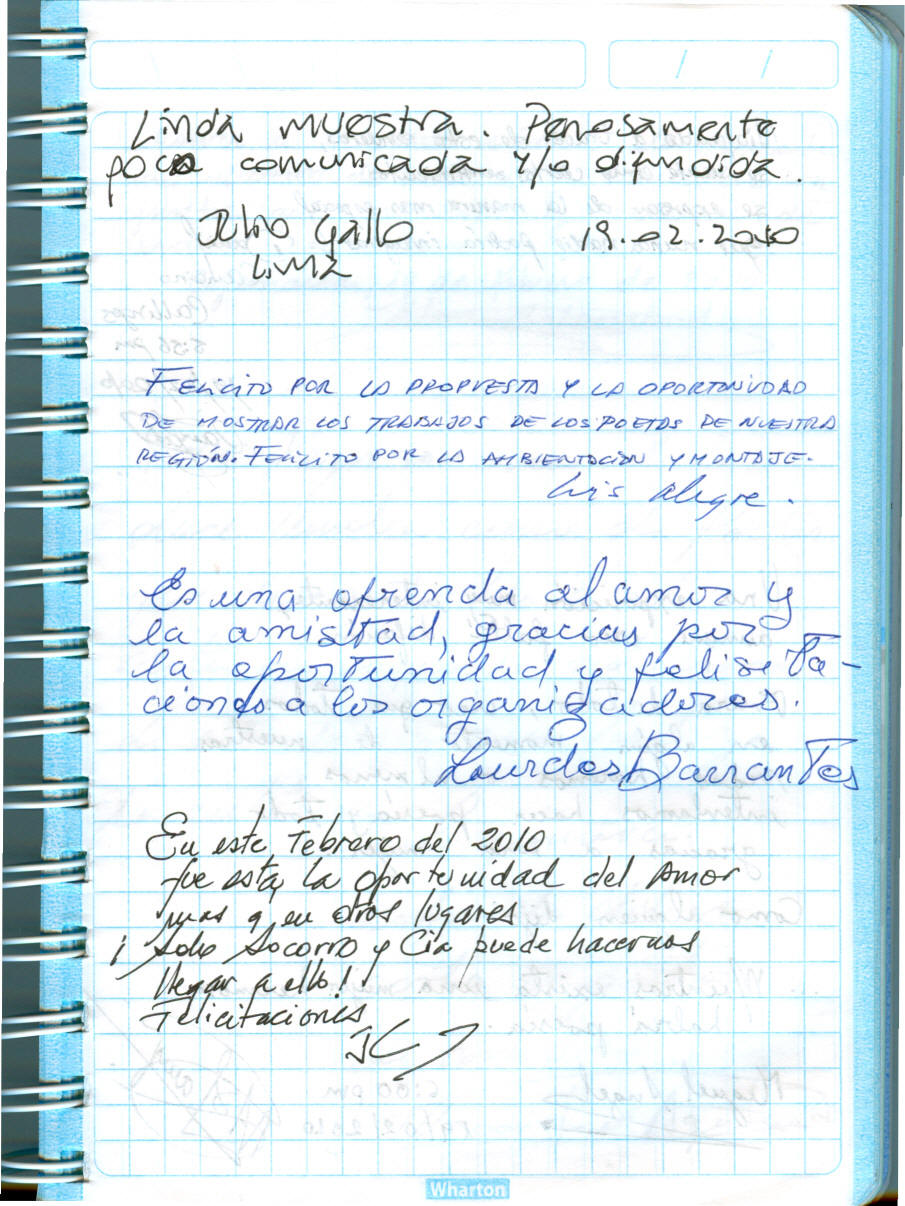 / /
Linda muestra. Penosamente
poco comunicada y/o difundida.
Julio Gallo 19.02.2010
LMZ
FELICITO POR LA PROPUESTA Y LA OPORTUNIDAD
DE MOSTRAR LOS TRABAJOS DE LOS POETAS DE NUESTRA
REGIÓN. FELICITO POR LA AMBIENTACION Y MONTAJE.
Luis Alegre.
Es una ofrenda al amor y
la amistad, gracias por
la oportunidad y felisita-
ciones a los organizadores.
Lourdes Barrantes
En este Febrero del 2010
fue esta, la oportunidad del Amor
mas q en otros lugares
¡ Solo Socorro y Cía puede hacernos
llegar a ello!
Felicitaciones
Wharton